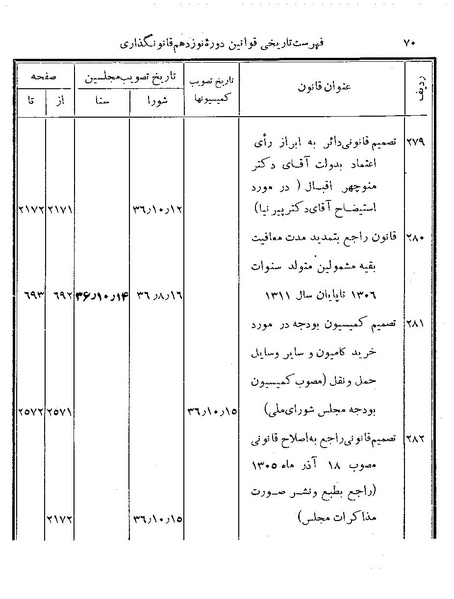 ۷۰ فهرست تاریخی قوانین دورهٔ نوزدهم قانونگذاری
ردیف عنوان قانون تاریخ تصویب کمیسیونها تاریخ تصویب مجلسین صفحه
شورا سنا از تا
۲۷۹ تصمیم قانونی دائر به ابراز رأی
اعتماد بدولت آقای دکتر
منوچهر اقبال (در مورد
استیضاح آقای دکتر پیرنیا) ۳۶٫۱۰٫۱۲ ۲۱۷۱ ۲۱۷۲
۲۸۰ قانون راجع بتمدید مدت معافیت
بقیه مشمولین متولد سنوات
۱۳۰۶ تا پایان سال ۱۳۱۱ ۳۶٫۸٫۱۶ ۳۶٫۱۰٫۱۴ ۶۹۲ ۶۹۳
۲۸۱ تصمیم کمیسیون بودجه در مورد
خرید کامیون و سایر وسایل
حمل و نقل (مصوب کمیسیون
بودجه مجلس شورای ملی) ۳۶٫۱۰٫۱۵ ۲۵۷۱ ۲۵۷۲
۲۸۲ تصمیم قانونی راجع به اصلاح قانونی
مصوب ۱۸ آذر ماه ۱۳۰۵
(راجع بطبع و نشر صورت
مذاکرات مجلس) ۳۶٫۱۰٫۱۵ ۲۱۷۲